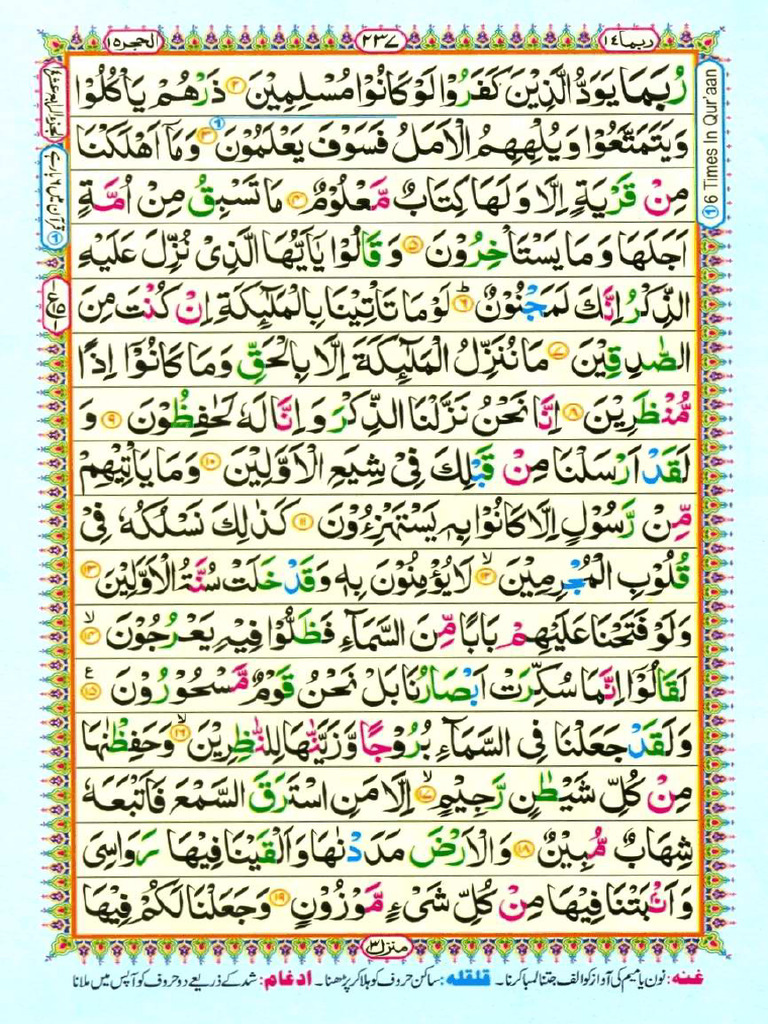 ربما ١٤
٢٣٧
الحجر ١٥
رُبَمَا يَوَدُّ الَّذِيْنَ كَفَرُوْا لَوْ كَانُوْا مُسْلِمِيْنَ ۝٢ ذَرْهُمْ يَاْكُلُوْا
وَيَتَمَتَّعُوْا وَيُلْهِهِمُ الْاَمَلُ فَسَوْفَ يَعْلَمُوْنَ ۝٣ وَمَاۤ اَهْلَكْنَا
مِنْ قَرْيَةٍ اِلَّا وَلَهَا كِتَابٌ مَّعْلُوْمٌ ۝٤ مَا تَسْبِقُ مِنْ اُمَّةٍ
اَجَلَهَا وَمَا يَسْتَاْخِرُوْنَ ۝٥ وَقَالُوْا يٰۤاَيُّهَا الَّذِيْ نُزِّلَ عَلَيْهِ
الذِّكْرُ اِنَّكَ لَمَجْنُوْنٌ ۝٦ؕ لَوْ مَا تَاْتِيْنَا بِالْمَلٰٓئِكَةِ اِنْ كُنْتَ مِنَ
الصّٰدِقِيْنَ ۝٧ مَا نُنَزِّلُ الْمَلٰٓئِكَةَ اِلَّا بِالْحَقِّ وَمَا كَانُوْۤا اِذًا
مُّنْظَرِيْنَ ۝٨ اِنَّا نَحْنُ نَزَّلْنَا الذِّكْرَ وَاِنَّا لَهٗ لَحٰفِظُوْنَ ۝٩ وَ
لَقَدْ اَرْسَلْنَا مِنْ قَبْلِكَ فِيْ شِيَعِ الْاَوَّلِيْنَ ۝١٠ وَمَا يَاْتِيْهِمْ
مِّنْ رَّسُوْلٍ اِلَّا كَانُوْا بِهٖ يَسْتَهْزِءُوْنَ ۝١١ كَذٰلِكَ نَسْلُكُهٗ فِيْ
قُلُوْبِ الْمُجْرِمِيْنَ ۝١٢ۙ لَا يُؤْمِنُوْنَ بِهٖ وَقَدْ خَلَتْ سُنَّةُ الْاَوَّلِيْنَ ۝١٣
وَلَوْ فَتَحْنَا عَلَيْهِمْ بَابًا مِّنَ السَّمَآءِ فَظَلُّوْا فِيْهِ يَعْرُجُوْنَ ۝١٤ۙ
لَقَالُوْۤا اِنَّمَا سُكِّرَتْ اَبْصَارُنَا بَلْ نَحْنُ قَوْمٌ مَّسْحُوْرُوْنَ ۝١٥ ع
وَلَقَدْ جَعَلْنَا فِي السَّمَآءِ بُرُوْجًا وَّزَيَّنّٰهَا لِلنّٰظِرِيْنَ ۝١٦ۙ وَحَفِظْنٰهَا
مِنْ كُلِّ شَيْطٰنٍ رَّجِيْمٍ ۝١٧ۙ اِلَّا مَنِ اسْتَرَقَ السَّمْعَ فَاَتْبَعَهٗ
شِهَابٌ مُّبِيْنٌ ۝١٨ وَالْاَرْضَ مَدَدْنٰهَا وَاَلْقَيْنَا فِيْهَا رَوَاسِيَ
وَاَنْۢبَتْنَا فِيْهَا مِنْ كُلِّ شَيْءٍ مَّوْزُوْنٍ ۝١٩ وَجَعَلْنَا لَكُمْ فِيْهَا
① 6 Times In Qur'aan
الجزء الرابع عشر
قرآن میں ٦ بارے ①
منزل ٣
غنہ: نون یا میم کی آواز کو الف جتنا لمبا کرنا۔ قلقلہ: ساکن حروف کو ہلا کر پڑھنا۔ ادغام: شد کے ذریعے دو حروف کو آپس میں ملانا